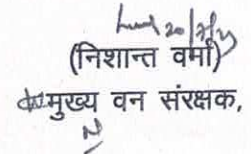 (निशान्त वर्मा)
मुख्य वन संरक्षक,